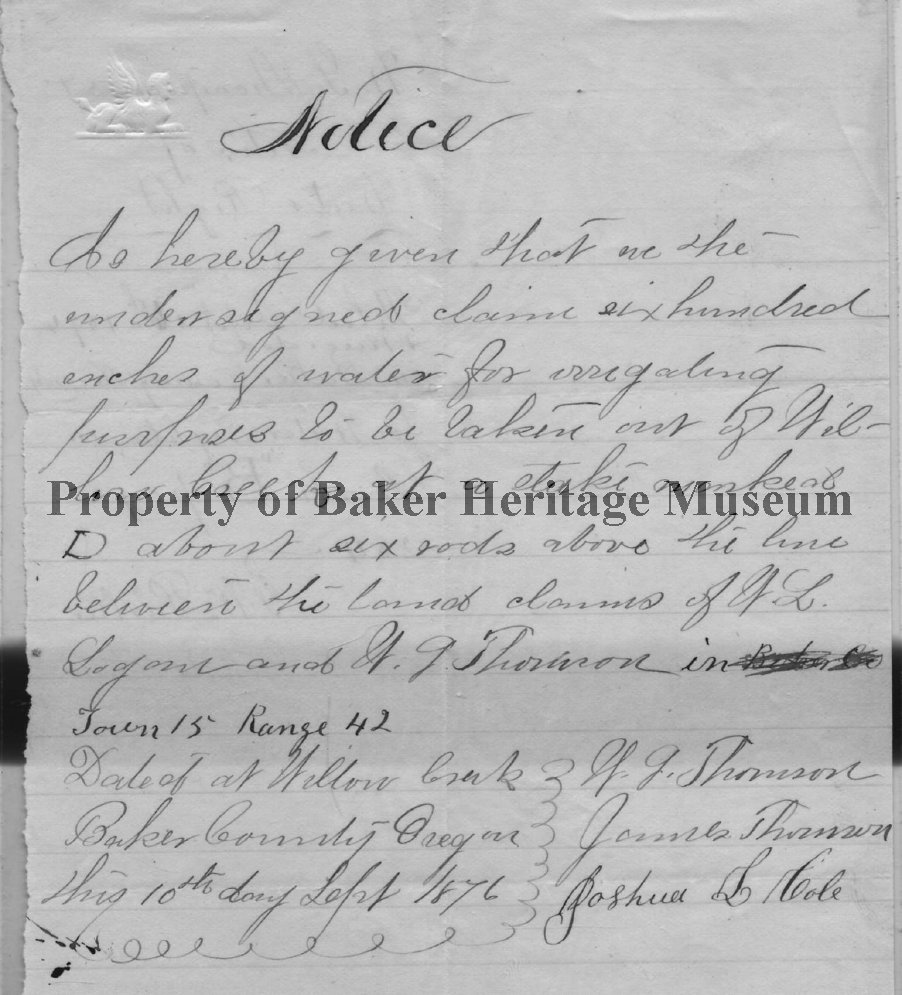 Notice
Is hereby given that we the
undersigned claim six hundred
inches of water for irrigating
purposes to be taken out of Wil-
low Creek at a stake marked
Property of Baker Heritage Museum
D about six rods above the line
between the land claims of W. L.
Logan and W. G. Thomson in
Town 15 Range 42
Dated at Willow Creek W. G. Thomson
Baker County Oregon James Thomson
this 10th day Sept 1876 Joshua L Cole